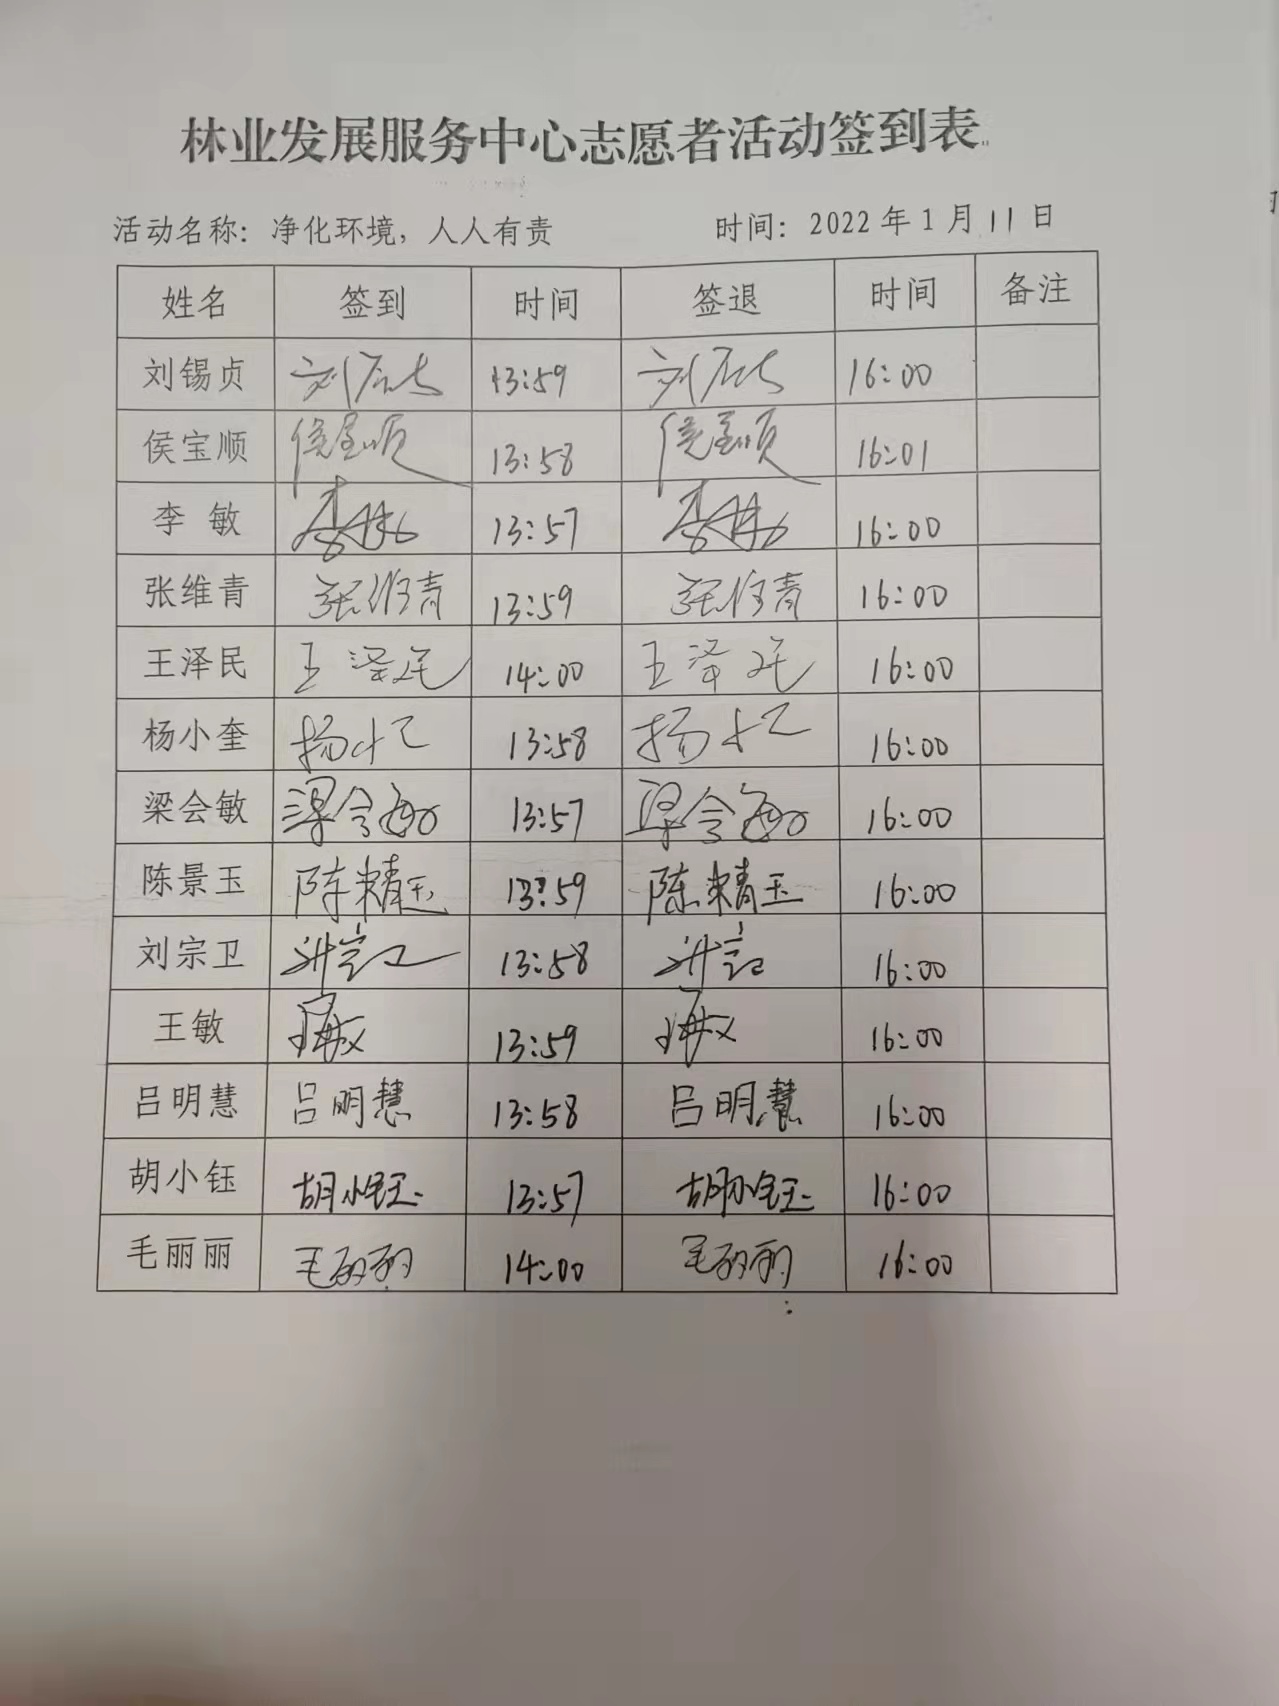 林业发展服务中心志愿者活动签到表
活动名称：净化环境，人人有责 时间：2022年1月11日
姓名 签到 时间 签退 时间 备注
刘锡贞 13:59 16:00
侯宝顺 侯宝顺 13:58 侯宝顺 16:01
李敏 李敏 13:57 李敏 16:00
张维青 张维青 13:59 张维青 16:00
王泽民 王泽民 14:00 王泽民 16:00
杨小奎 13:58 16:00
梁会敏 梁会敏 13:57 梁会敏 16:00
陈景玉 13:59 16:00
刘宗卫 13:58 16:00
王敏 王敏 13:59 王敏 16:00
吕明慧 吕明慧 13:58 吕明慧 16:00
胡小钰 胡小钰 13:57 胡小钰 16:00
毛丽丽 毛丽丽 14:00 毛丽丽 16:00